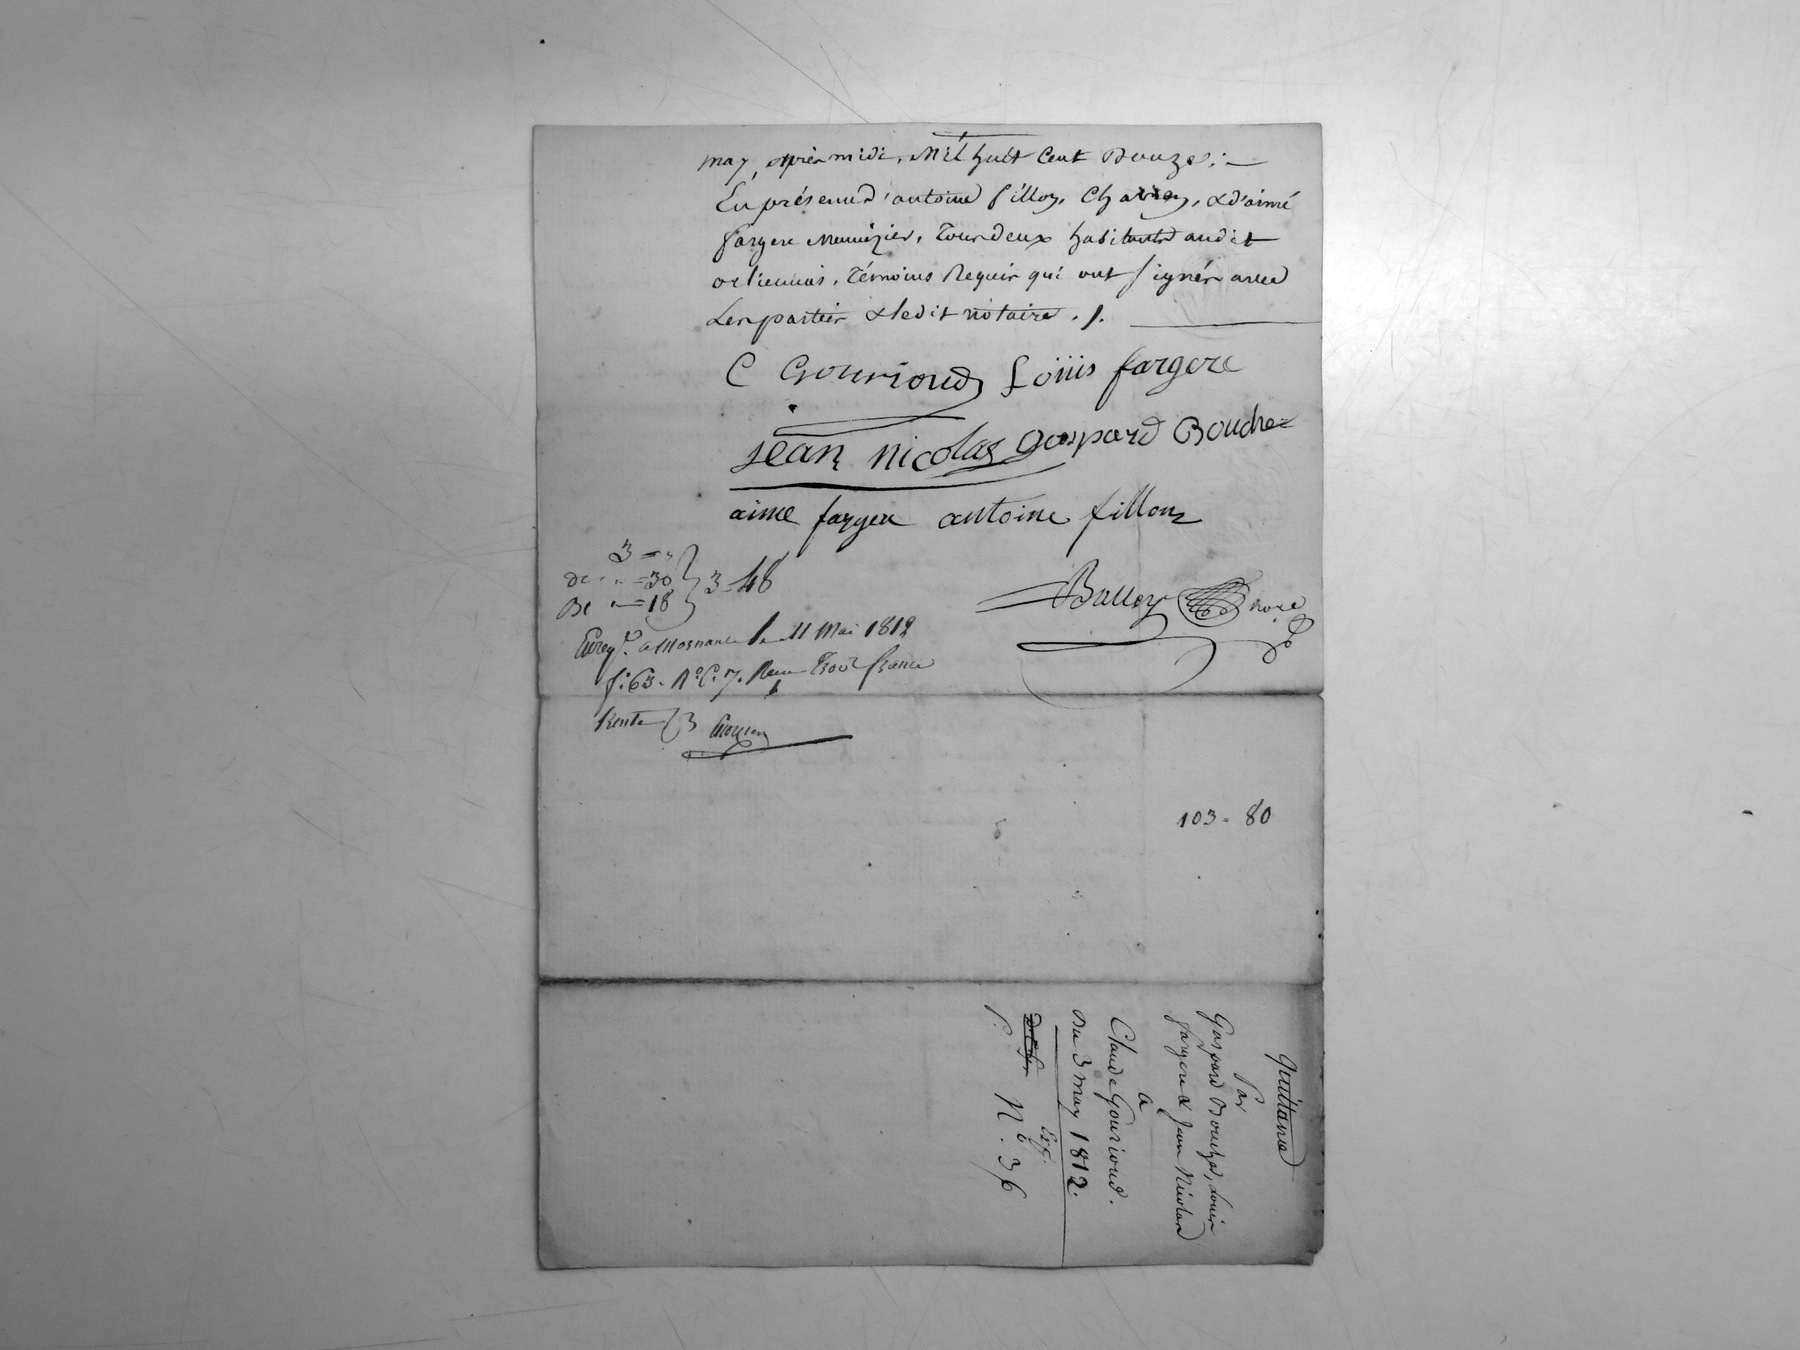 may, après midi, Mil huit Cent Douze: —
En présence d'antoine fillon, Charron, & d'aimé
fargere Menuizier, Tous deux habitants audit
orlienas, Témoins Requis qui ont signés avec
Les parties & ledit notaire ./.
C Gourioud Louis fargere
jean nicolas gaspard Bouchez
aime fargere antoine fillon
Balley nore
3 = "
De " = 30
Be " = 18
3-48
Enreg. a Mornant le 11 Mai 1812
f. 63. R° C. 7. Reçu Trois francs
103 - 80
quittance
Par
Gaspard Bouchez, Louis
fargere & Jean Nicolas
a
Claude Gourioud.
Du 3 may 1812.
Exp.
N. 36